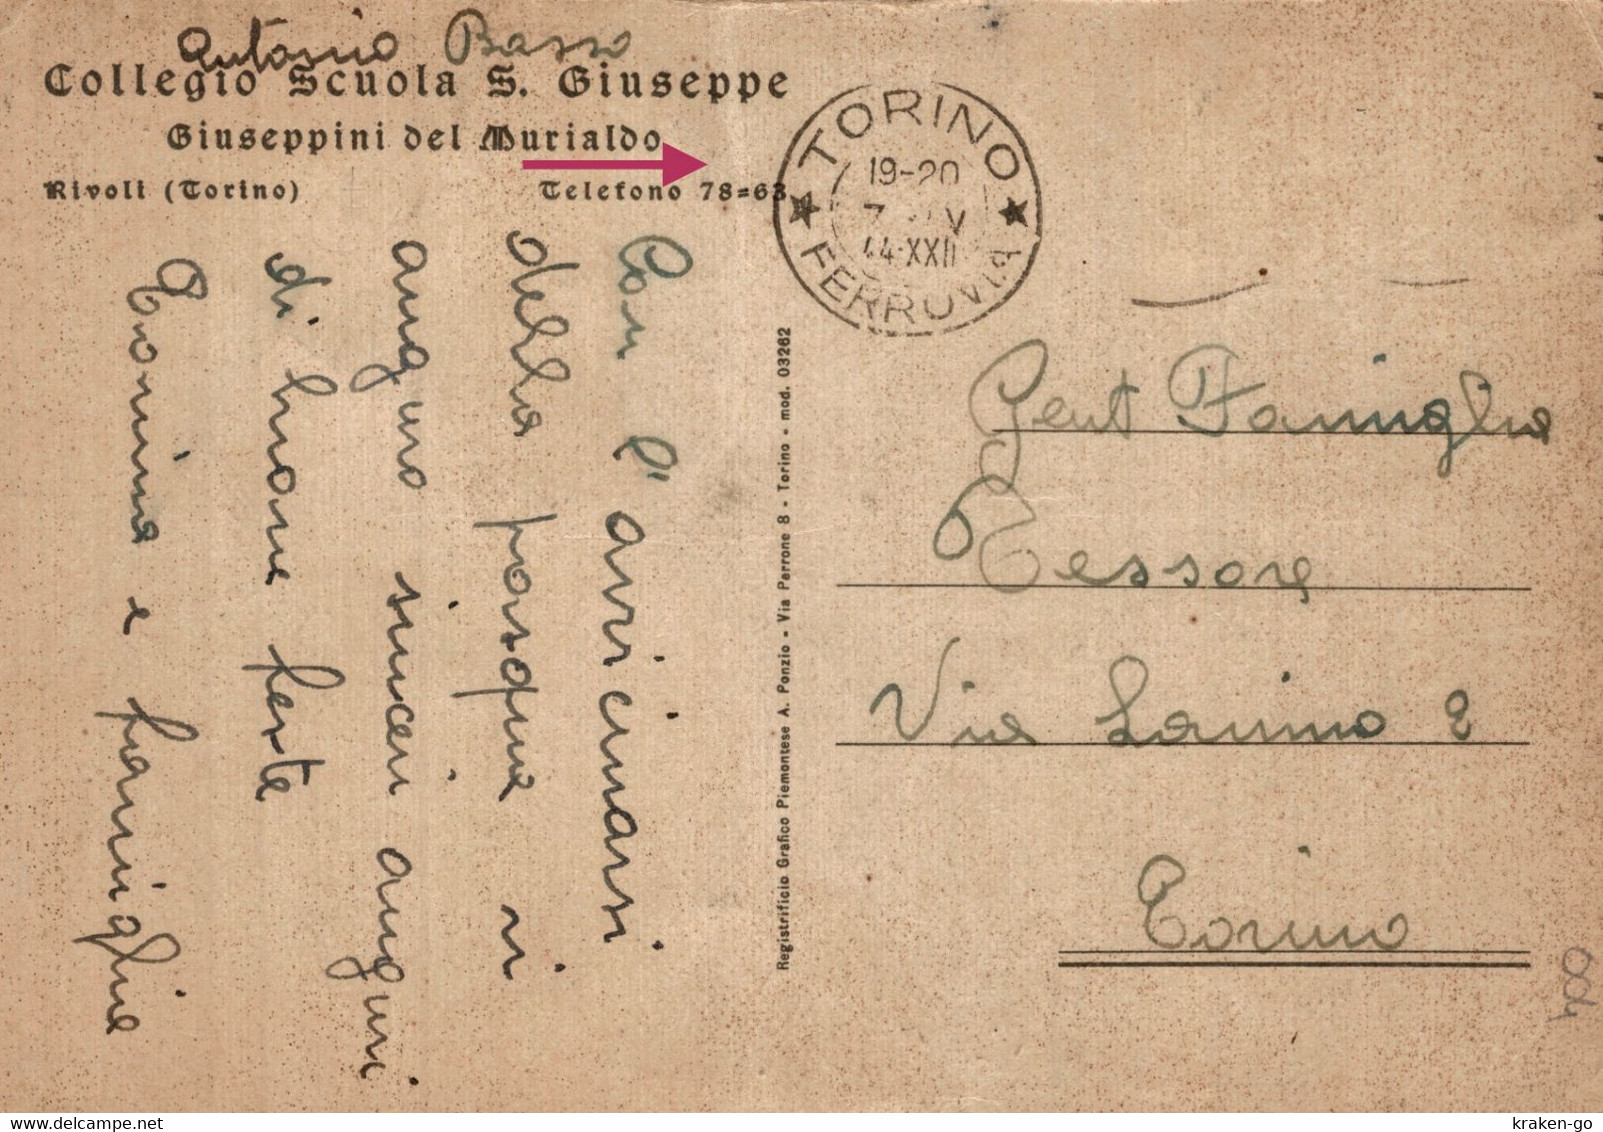 Antonio Basso
Collegio Scuola S. Giuseppe
Giuseppini del Murialdo
Rivoli (Torino)
Telefono 78=63
TORINO
19-20
7 V
44·XXII
FERROVIA
Con l' avvicinarsi
della pasqua vi
auguro sinceri auguri
di buone feste
Tonino e famiglia
Registrificio Grafico Piemontese A. Ponzio - Via Perrone 8 - Torino - mod. 03262
Gent Famiglia
Tessore
Via 2
Torino
delcampe.net
kraken-go